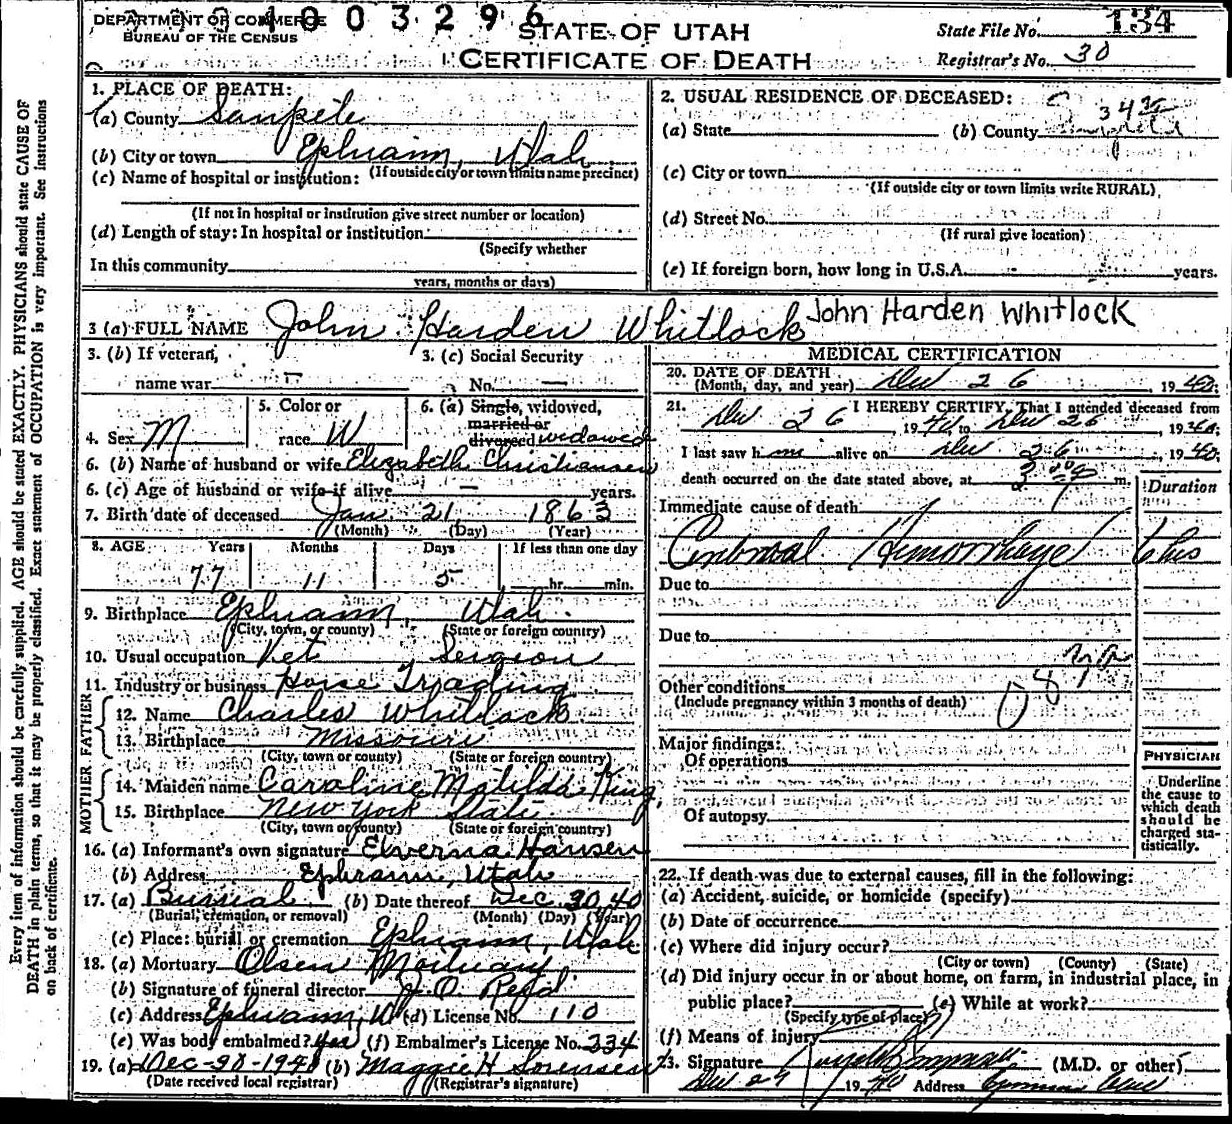 DEPARTMENT OF COMMERCE
BUREAU OF THE CENSUS
1003296
STATE OF UTAH
CERTIFICATE OF DEATH
State File No. 134
Registrar's No. 30
Every item of information should be carefully supplied. AGE should be stated EXACTLY. PHYSICIANS should state CAUSE OF
DEATH in plain terms, so that it may be properly classified. Exact statement of OCCUPATION is very important. See instructions
on back of certificate.
1. PLACE OF DEATH:
(a) County Sanpete
(b) City or town Ephraim, Utah
(If outside city or town limits name precinct)
(c) Name of hospital or institution:
(If not in hospital or institution give street number or location)
(d) Length of stay: In hospital or institution
(Specify whether
In this community
years, months or days)
2. USUAL RESIDENCE OF DECEASED:
(a) State (b) County
(c) City or town
(If outside city or town limits write RURAL)
(d) Street No.
(If rural give location)
(e) If foreign born, how long in U.S.A. years.
3 (a) FULL NAME John Harden Whitlock John Harden Whitlock
3. (b) If veteran, name war —
3. (c) Social Security No. —
4. Sex M
5. Color or race W
6. (a) Single, widowed, married or divorced widowed
6. (b) Name of husband or wife Elizabeth Christiansen
6. (c) Age of husband or wife if alive — years.
7. Birth date of deceased Jan 21 1863
(Month) (Day) (Year)
8. AGE Years Months Days If less than one day
77 11 5 hr. min.
9. Birthplace Ephraim, Utah
(City, town, or county) (State or foreign country)
10. Usual occupation Vet Sergeon
11. Industry or business Horse Trading
FATHER
12. Name Charles Whitlock
13. Birthplace Missouri
(City, town or county) (State or foreign country)
MOTHER
14. Maiden name Caroline Matilda King
15. Birthplace New York State
(City, town or county) (State or foreign country)
16. (a) Informant's own signature Elverna Hansen
(b) Address Ephraim, Utah
17. (a) Burial (b) Date thereof Dec 30 40
(Burial, cremation, or removal) (Month) (Day) (Year)
(c) Place: burial or cremation Ephraim, Utah
18. (a) Mortuary Olsen Mortuary
(b) Signature of funeral director
(c) Address Ephraim, U (d) License No. 110
(e) Was body embalmed? Yes (f) Embalmer's License No. 334
19. (a) Dec-30-1940 (b) Maggie H Sorensen
(Date received local registrar) (Registrar's signature)
MEDICAL CERTIFICATION
20. DATE OF DEATH
(Month, day, and year) Dec 26 1940
21. I HEREBY CERTIFY, That I attended deceased from
Dec 26 1940 to Dec 26 1940
I last saw him alive on Dec 26 1940
death occurred on the date stated above, at m.
Duration
Immediate cause of death
Cerebral Hemorrhage 6 hrs
Due to
Due to
Other conditions
(Include pregnancy within 3 months of death)
Major findings:
Of operations
Of autopsy
PHYSICIAN
Underline
the cause to
which death
should be
charged sta-
tistically.
22. If death was due to external causes, fill in the following:
(a) Accident, suicide, or homicide (specify)
(b) Date of occurrence
(c) Where did injury occur?
(City or town) (County) (State)
(d) Did injury occur in or about home, on farm, in industrial place, in
public place? (e) While at work?
(Specify type of place)
(f) Means of injury
23. Signature (M.D. or other)
1940 Address